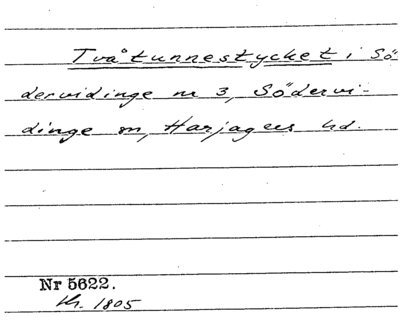 Tvåtunnestycket i Sö-
dervidinge nr 3, Södervi-
dinge sn, Harjagers hd.
Nr 5622.
1805